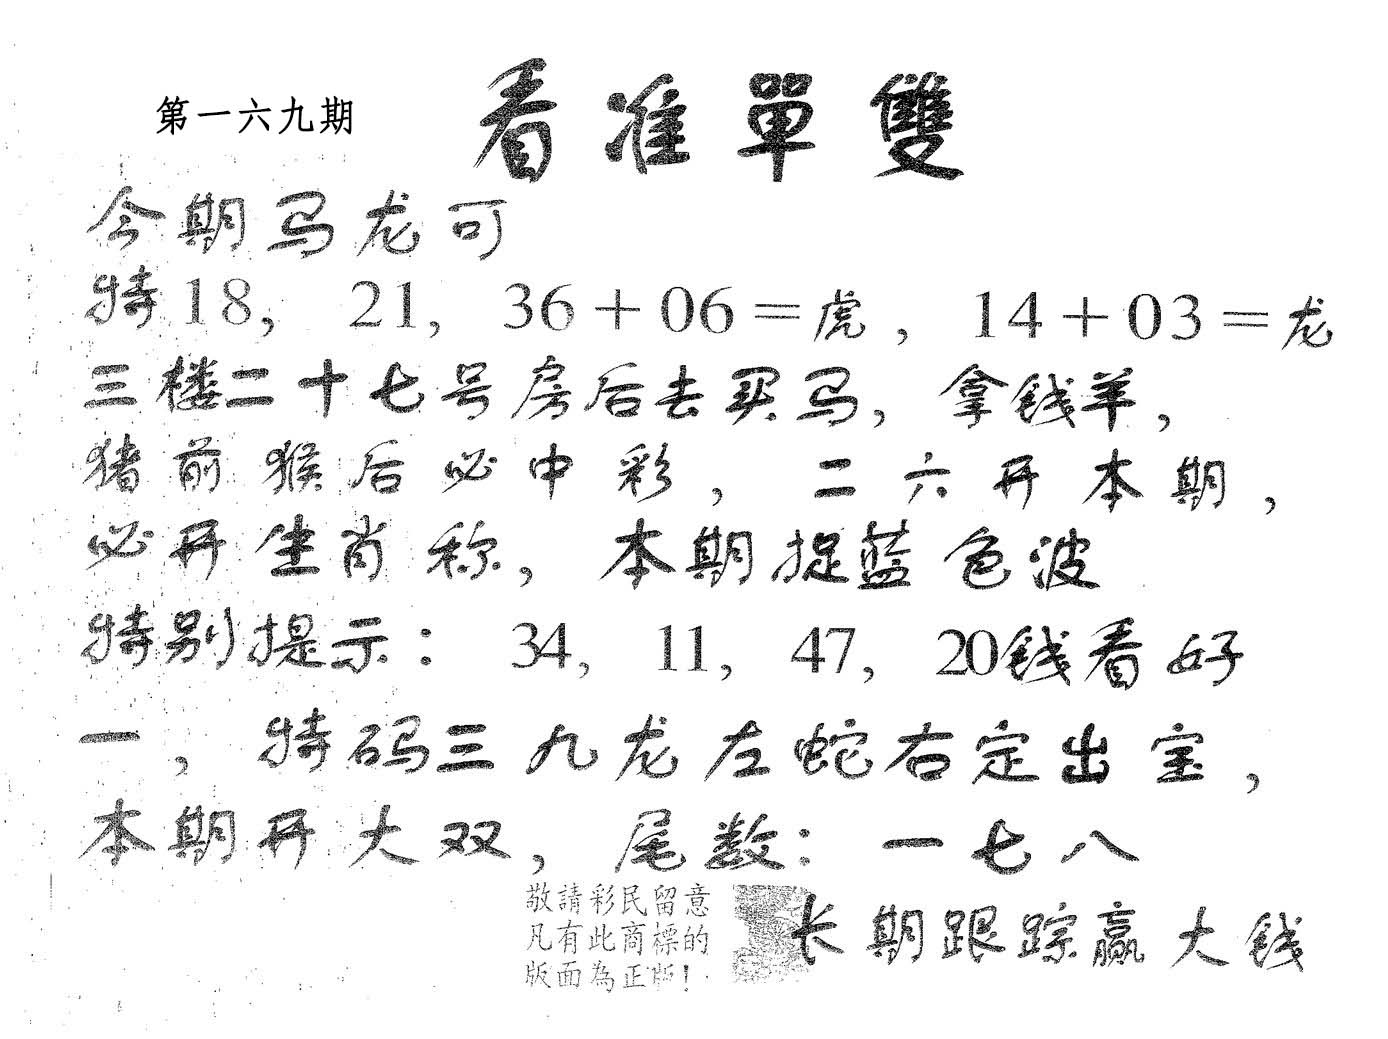 第一六九期
看准單雙
今期马龙可
特18, 21, 36+06=虎, 14+03=龙
三楼二十七号房后去买马, 拿钱羊,
猪前猴后必中彩, 二六开本期,
必开生肖称, 本期捉蓝色波
特别提示: 34, 11, 47, 20钱看好
一, 特码三九龙左蛇右定出宝,
本期开大双, 尾数: 一七八
敬請彩民留意
凡有此商標的
版面為正版!
长期跟踪赢大钱